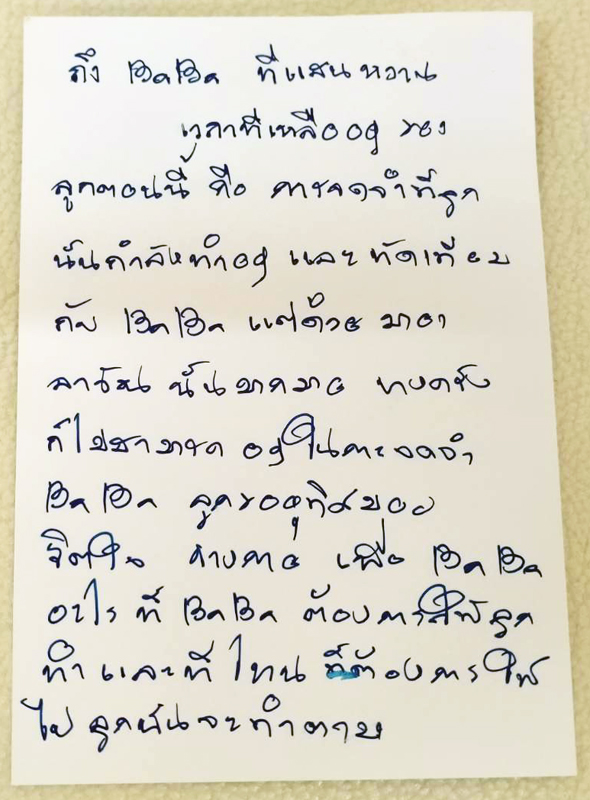 ถึง BaBa ที่แสนหวาน
เวลาที่เหลืออยู่ ของ
ลูกตอนนี้ คือ การจดจำที่ลูก
นั้นกำลังทำอยู่ และ ทัดเทียม
กับ BaBa แต่ด้วย มายา
ราวัน นั้นมากมาย บางครั้ง
ก็ไม่สามารถ อยู่ในการจดจำ
BaBa ลูกขออุทิศมอบ
จิตใจ ร่างกาย เพื่อ BaBa
อะไร ที่ BaBa ต้องการให้ลูก
ทำ และที่ ไหน ที่ต้องการ ให้
ไป ลูกนั้นจะทำตาม